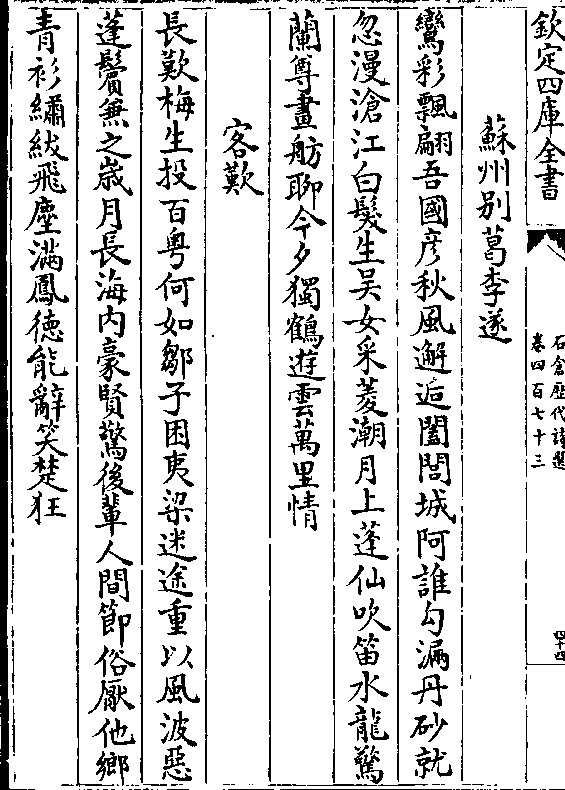 欽定四庫全書
石倉歷代詩選
卷四百七十三
四十四
蘇州别葛李遂
鸞彩飄翩吾國彦秋風邂逅闔閭城阿誰勾漏丹砂就
忽漫滄江白髮生吴女采菱潮月上蓬仙吹笛水龍驚
蘭尊畫舫聊今夕獨鶴遊雲萬里情
客歎
長歎梅生投百粤何如鄒子困夷梁迷途重以風波惡
蓬鬢兼之歳月長海内豪賢驚後輩人間節俗厭他鄉
青衫繡紱飛塵滿鳳德能辭笑楚狂